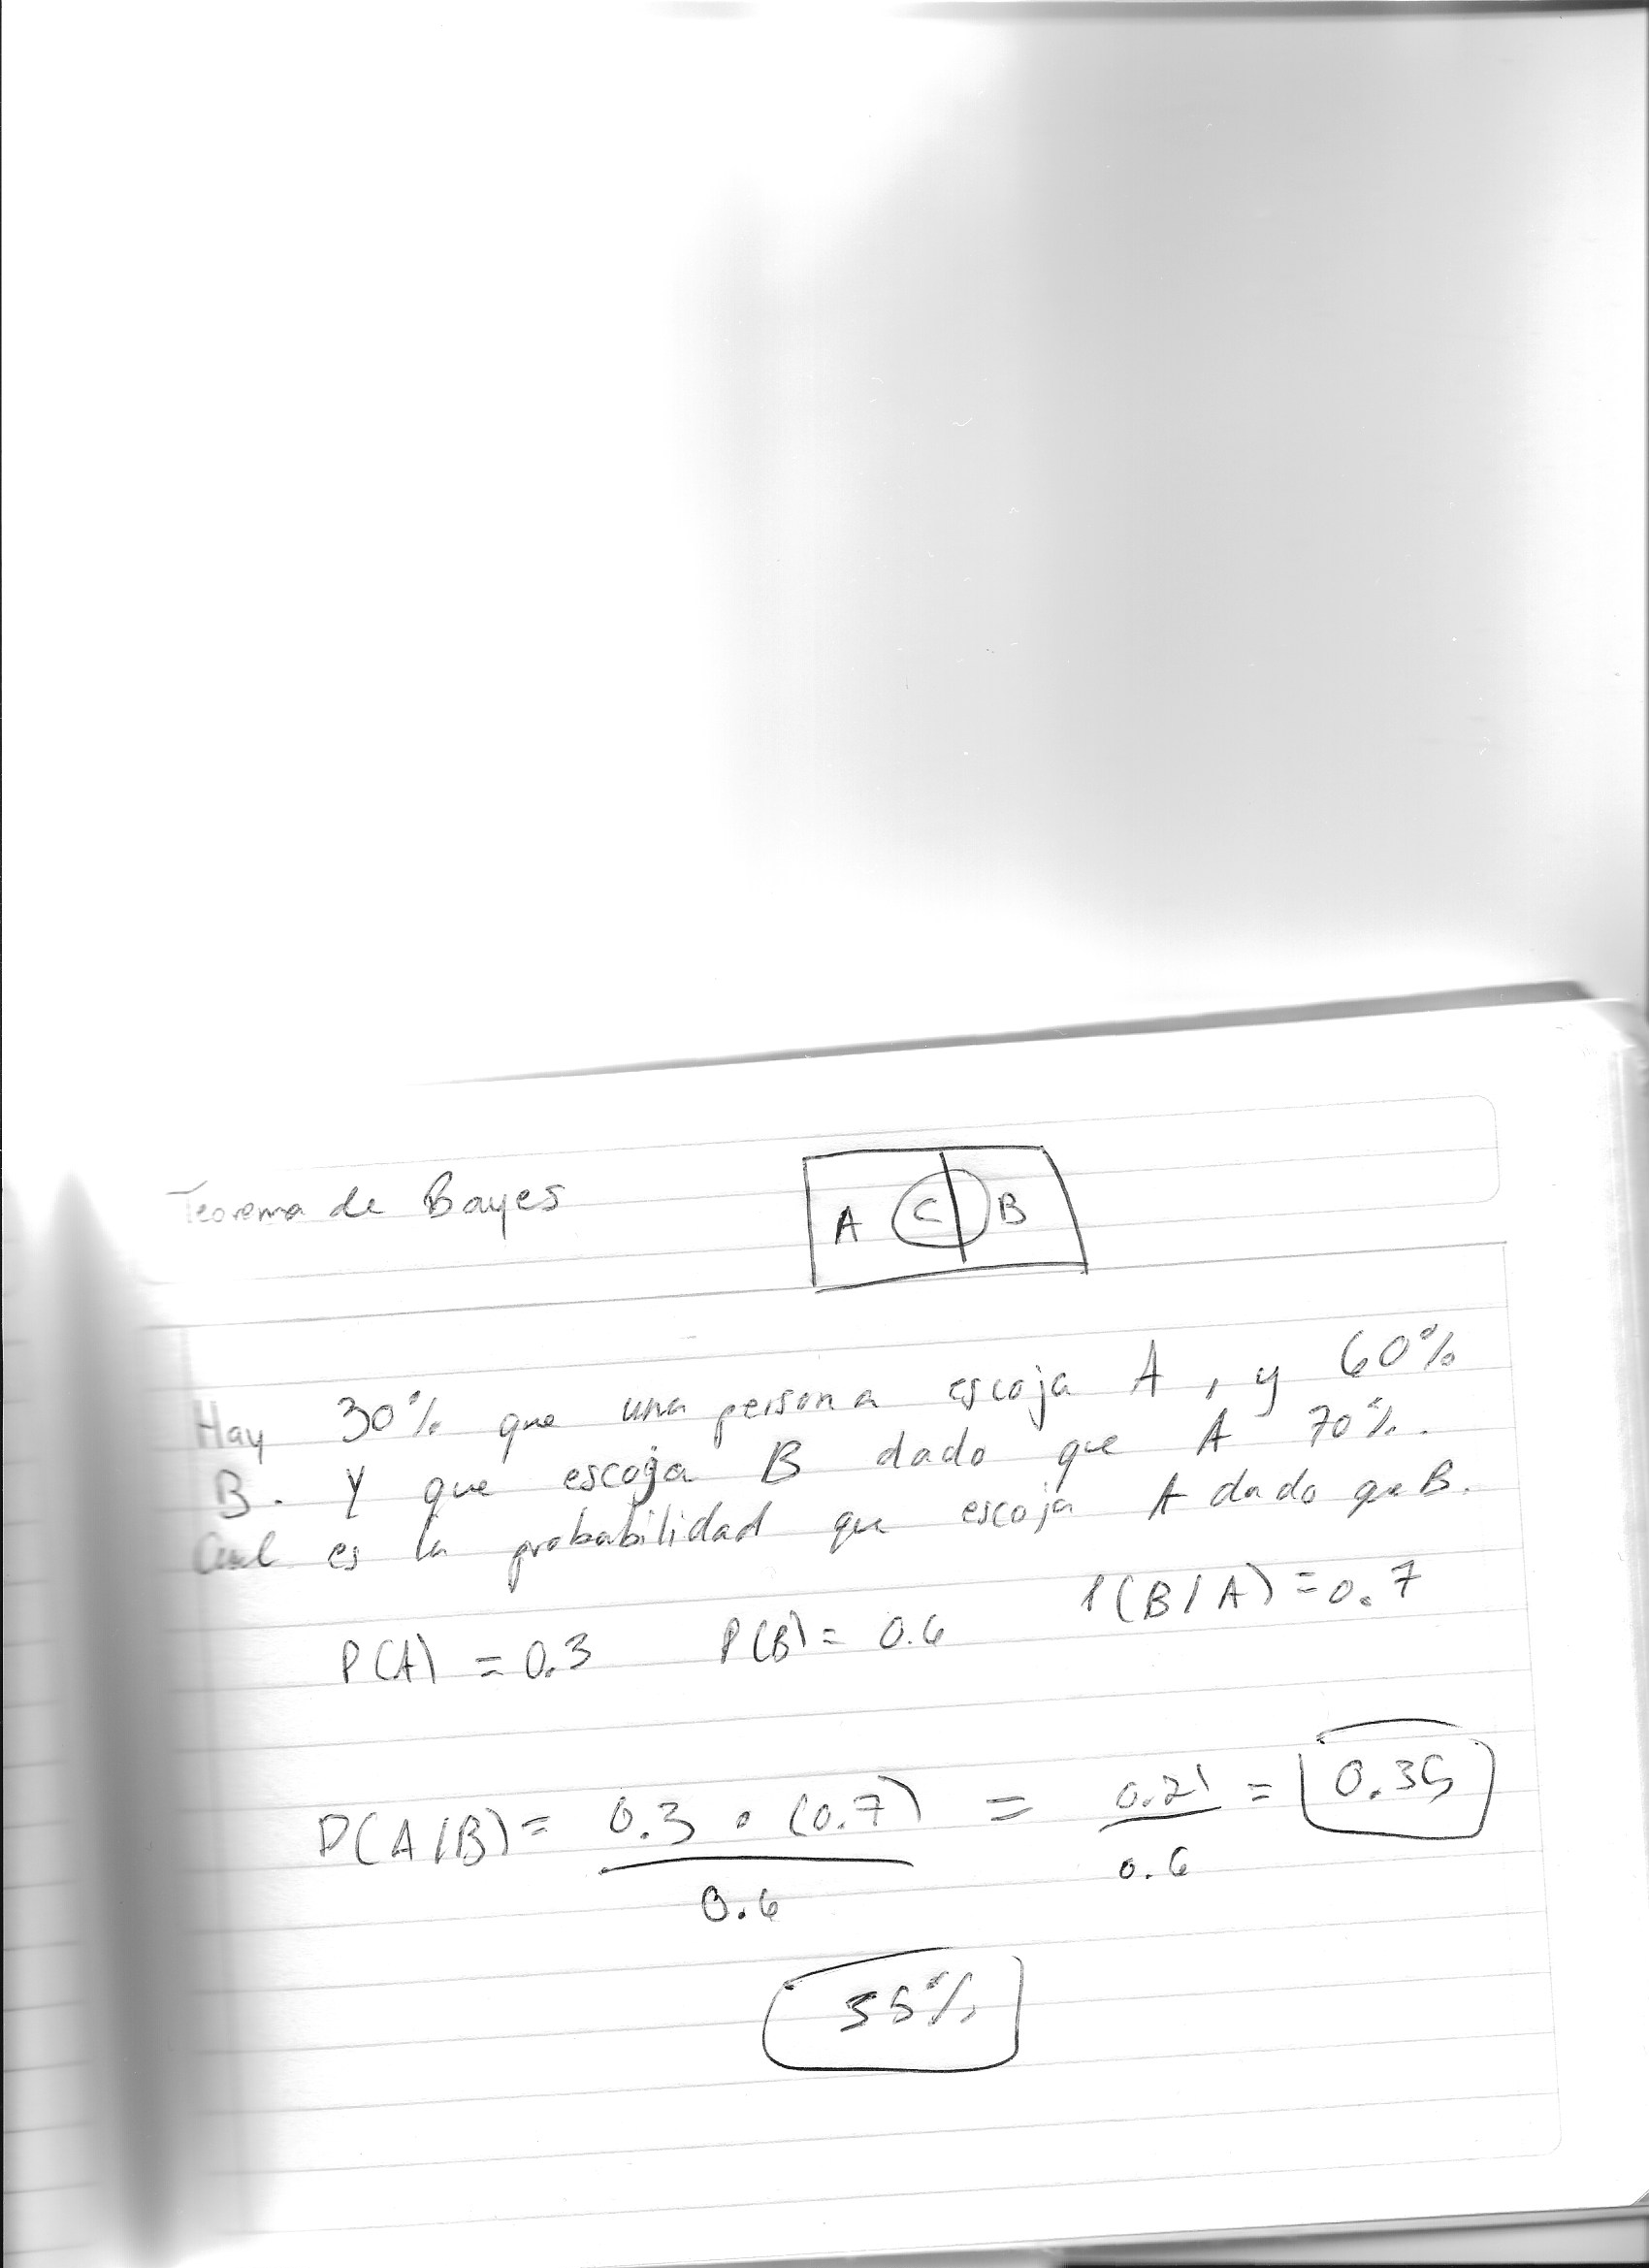 Teorema de Bayes
A C B
Hay 30% que una persona escoja A, y 60%
B. Y que escoja B dado que A 70%.
Cual es la probabilidad que escoja A dado que B.
P(A) = 0.3 P(B) = 0.6 P(B/A) = 0.7
P(A/B) = 0.3 • (0.7) = 0.21 = 0.35
0.6 0.6
35%